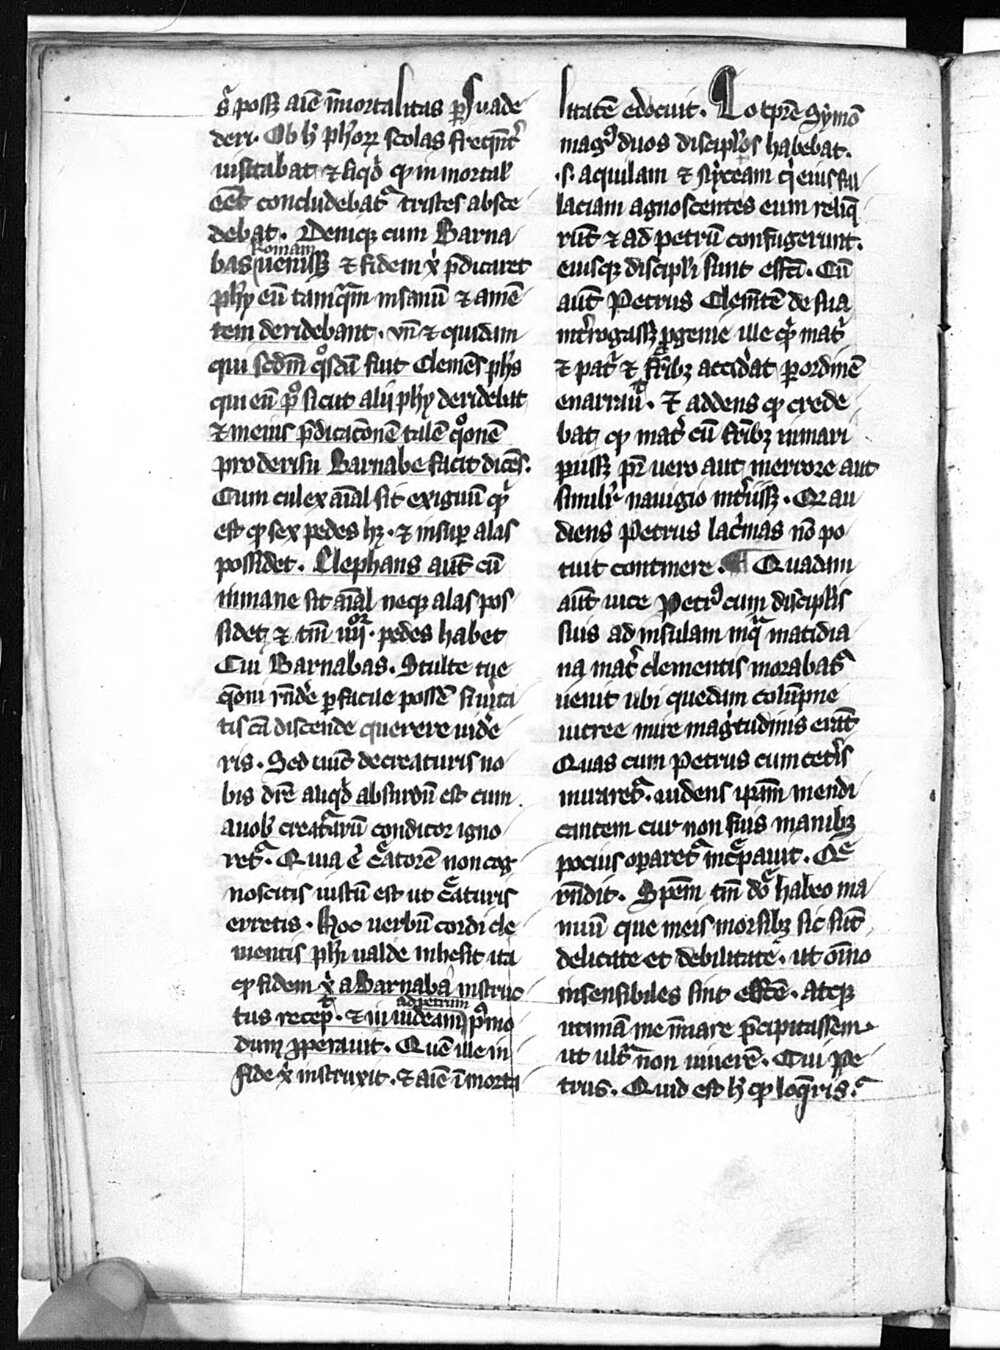 posset aīe īmortalitas persuade
deri. Ob hͨ ph̄orꝝ scolas freqn̄tͬ
visitabat ⁊ siqͥd ꝙ inmortal'
eēt concludebatᷓ tristes absce
debat. Deniqꝫ cum Barna
bas Romam venissꝫ ⁊ fidem xͥ p̄dicaret
ph̄y eū tamqᷓm insanū ⁊ amē
tem deridebant. vn̄ ⁊ quidam
qui scdm̄ qͦsdā fuit Clemēs ph̄s
qui eū pͦ sicut alij ph̄y deridebat
⁊ meius p̄dicacōnem talē qͦnē
pro derisu Barnabe facit dicēs.
Cum culex aīal sit exiguū qͬ
est ꝙ sex pedes hꝫ. ⁊ insuꝑ alas
possidet. Elephans aut̄ cū
inmane sit aīal neqꝫ alas pos
sidet ⁊ tm̄ iiijᵒʳ pedes habet
Cui Barnabas. Stulte tue
qōni rn̄dͤe ꝑfacile possē si vͥta
tis cā discende querere vidͤe
ris. Sed nūc de creaturis no
bis dicͤe aliqͥd absurdū est cum
a vob' creatᷓrarū conditor igno
retᷓ. Quia ē cᷓatorē non cog
noscitis iustū est ut cᷓaturis
erretis. Hoc verbū cordi cle
mentis ph̄i valde inhesit ita
ꝙ fidem xͥ a Barnaba instruc
tus recepͭ. ⁊ in iudeam ad petrum pꝰmo
dum ꝓperavit. Quē ille in
fide xͥ instruxit. ⁊ aīe īmorta
litatē edocuit. Eo tp̄re Symō
magꝰ duos discipl'os habebat.
.s. aquilam ⁊ nyceam qͥ eius fal
laciam agnoscentes eum reliq̄
rūt ⁊ ad petrū confugerunt.
eiusqꝫ discipli sunt effcī. Cū
aut̄ Petrus Clemn̄tē de sua
inͭrogassꝫ ꝓgenie ille qͥ matͥ
⁊ patͥ ⁊ fr̄ibꝫ accidͤat ꝑ ordinē
enarravͭ. ⁊ addens ꝙ crede
bat ꝙ matͤ cū fr̄ibꝫ in mari
piissꝫ pr̄ vero aut merrore aut
similiͬ navigio intͤissꝫ. Qͦ au
diens Petrus lacͥmas nō po
tuit continere. ¶ Quadam
aut̄ vice Petrꝰ cum discipl'is
suis ad insulam in qᷓ matidia
na matͬ clementis morabatᷓ
venit ubi quedam colūpne
vitree mire magͥtudinis erāt
Quas cum Petrus cum cetͤis
miraretᷓ. videns ip̄am mendi
cantem cur non suis manibꝫ
pocius operaretᷓ incͤpavit. Qͤ
rn̄dit. Speciem tm̄ dn̄e habeo ma
nuū que meis morsibꝫ sic sūt
delicate et debilitate. ut om̄no
insensibiles sint effcē. atqꝫ
utinā me in mare p̄cipitassem.
ut ultͣ non viverē. Cui Pe
trus. Quid est hͨ ꝙ loqͤris.